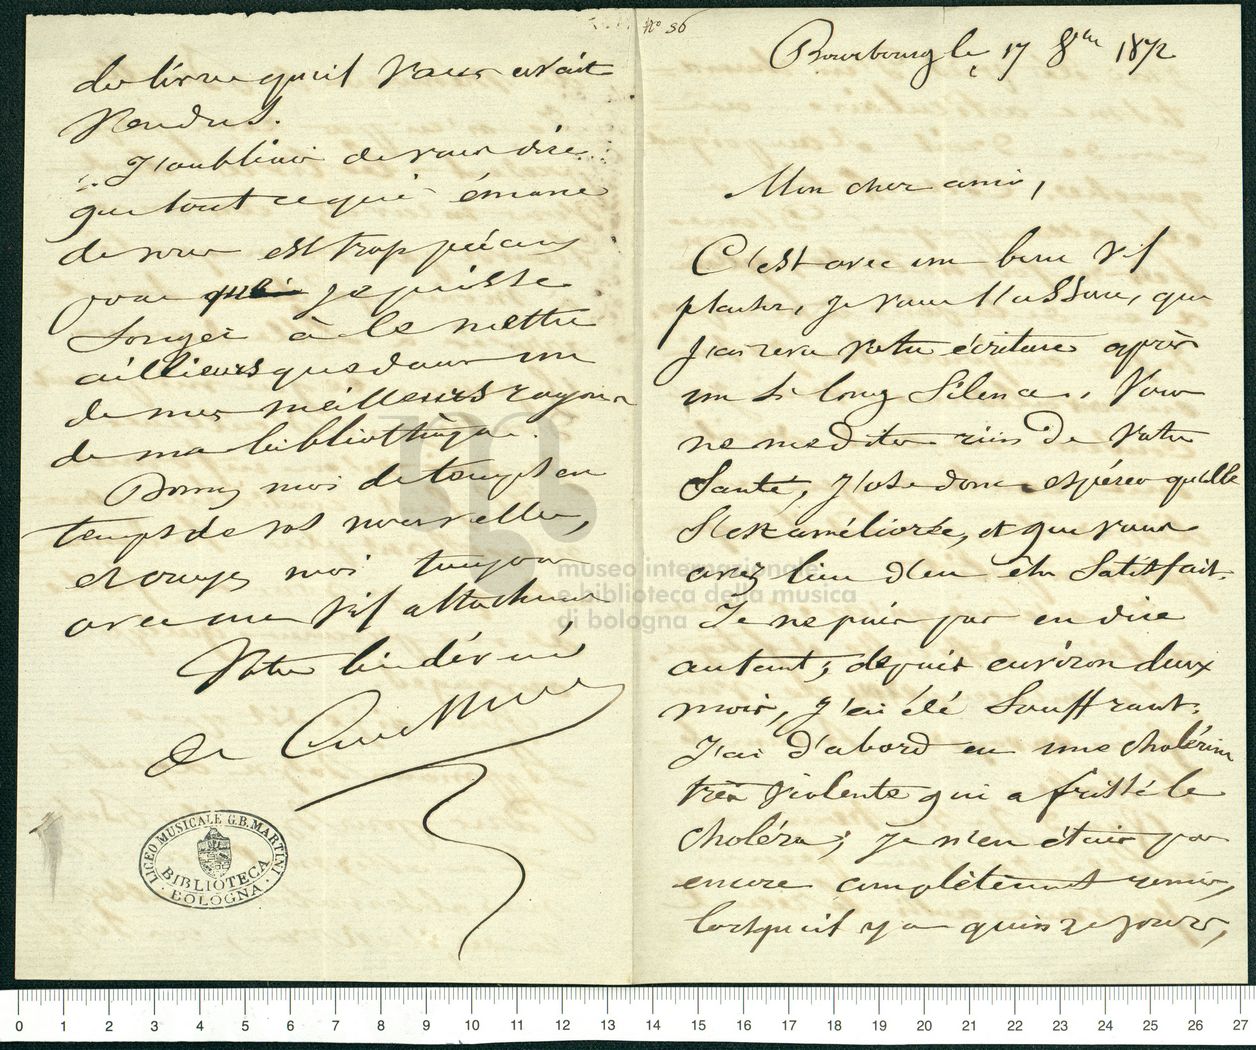 N° 36
Bourbourg le 17 8bre 1872
Mon cher ami,
C'est avec un bien vif
plaisir, je vous l'assure, que
j'ai revu votre écriture après
un si long silence. Vous
ne me dites rien de votre
santé, j'ose donc espérer qu'elle
s'est améliorée, et que vous
avez lieu d'en être satisfait.
Je ne puis pas en dire
autant; depuis environ deux
mois, j'ai été souffrant.
J'ai d'abord eu une cholérine
très violente qui a frisé le
choléra; je n'en étais pas
encore complètement remis,
lorsqu'il y a quinze jours,
de livres qu'il vous avait
vendus.
J'oubliais de vous dire
que tout ce qui émane
de vous est trop précieux
pour que je puisse
songer à le mettre
ailleurs que dans un
de mes meilleurs rayons
de ma bibliothèque.
Donnez moi de temps en
temps de vos nouvelles,
et croyez moi toujours
avec un vif attachement,
Votre bien dévoué
de Coussemaker
LICEO MUSICALE G.B. MARTINI
BIBLIOTECA
BOLOGNA
museo internazionale
e biblioteca della musica
di bologna
0 1 2 3 4 5 6 7 8 9 10 11 12 13 14 15 16 17 18 19 20 21 22 23 24 25 26 27